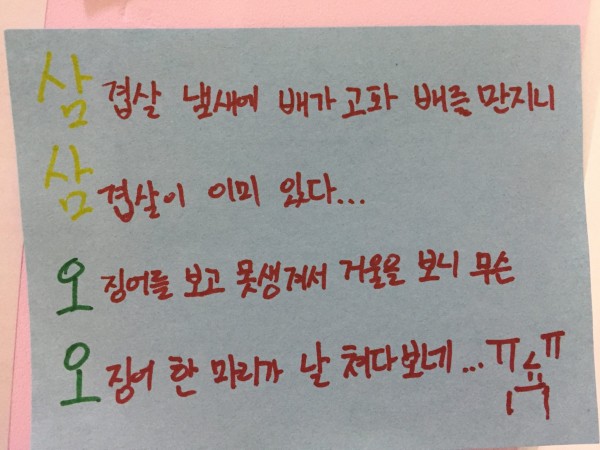 삼겹살 냄새에 배가 고파 배를 만지니
삼겹살이 이미 있다...
오징어를 보고 못생겨서 거울을 보니 무슨
오징어 한 마리가 날 쳐다보네...ㅠ슦ㅠ